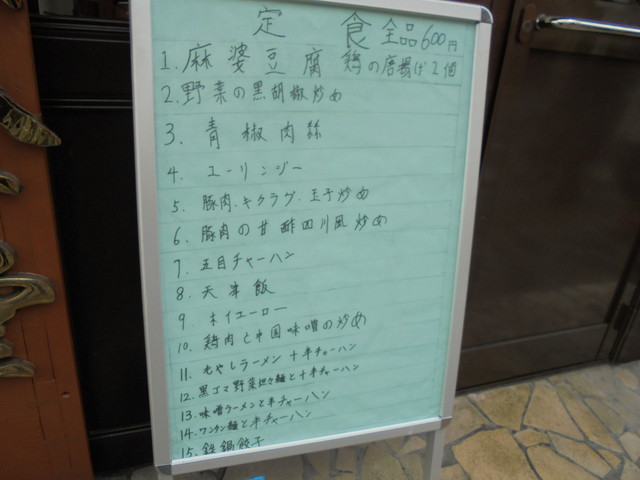 定食 全品600円
1. 麻婆豆腐 鶏の唐揚げ2個
2. 野菜の黒胡椒炒め
3. 青椒肉絲
4 ユーリンジー
5 豚肉.キクラゲ.玉子炒め
6. 豚肉の甘酢四川風炒め
7. 五目チャーハン
8 天津飯
9 ホイコーロー
10 鶏肉と中国味噌の炒め
11 もやしラーメン+半チャーハン
12. 黒ゴマ野菜担々麺と+半チャーハン
13. 味噌ラーメンと半チャーハン
14. ワンタン麺と半チャーハン
15. 鉄鍋餃子